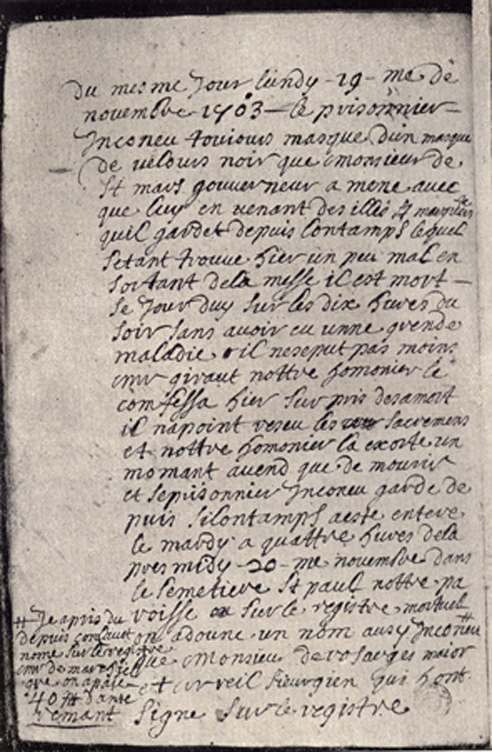 du mesme jour lundy - 19 - me de
novembre 1703 - le prisonnier -
Inconeu toujours masque dun masque
de velours noir que monsieur de
st mars gouverneur a mene avec
que luy en venant des illes
quil gardet depuis lontamps lequel
setant trouve hier un peu mal en
sortant dela messe il est mort -
se jour duy sur les dix hures du
soir sans avoir eu unne grende
maladie il neseput pas moins
mr giraut nottre homonier le
comfessa hier sur pris desamort
il napoint reseu les sacremens
et nottre homonier la exorte un
momant avend que de mourir
et seprisonnier Inconeu garde de
puis silontamps aeste entere
le mardy a quattre hures dela
pres midy - 20 - me novembre dans
le semetiere st paul nottre pa
roisse sur le registre mortuel
on adoune un nom ausy Inconeu #
que monsieur de rosarges maior
et arreil sieurgien qui hont
signe sur le registre
# Je apris du
depuis
nome sur le registre
mr de
que on a paie
40 # dante
remant